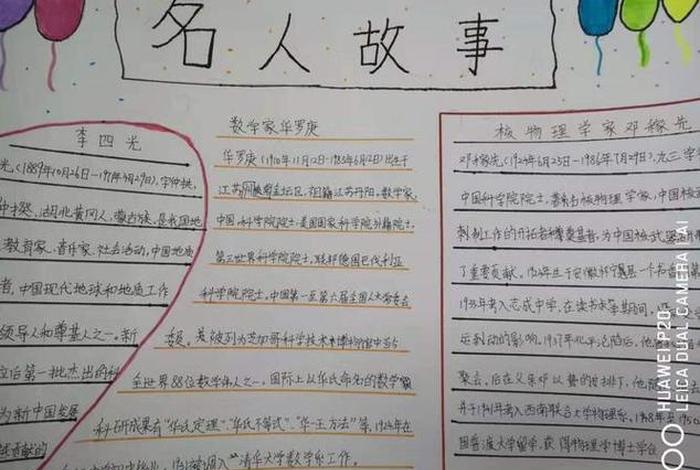 名人故事
李四光
光,(1889年10月26日—1971年4月29日),字仲拱,
仲揆,湖北黄冈人,蒙古族,是我国地
教育家、音乐家、社会活动,中国地质
者,中国现代地球和地质工作
领导人和奠基人之一,新
立后第一批杰出的科
为新中国发展
贡献的
数学家华罗庚
华罗庚(1910年11月12日-1985年6月12日)出生于
江苏金坛区,祖籍江苏丹阳,数学家,
中国科学院院士,美国国家科学院外籍院士,
第三世界科学院院士,联邦德国巴伐利亚
科学院院士,中国第一至第六届全国人大常委会
委员,被列为芝加哥科学技术博物馆中当今
全世界88位数学伟人之一,国际上以华氏命名的数学
科研成果有“华氏定理”、“华氏不等式”、“华-王方法”等,
清华大学数学系工作。
核物理学家邓稼先
邓稼先(1924年6月25日—1986年7月29日),九三学
中国科学院院士,著名核物理学家,中国核
制工作的开拓者和奠基者,为中国核武器
了重要贡献。1924年生于安徽怀宁县一个书香
1935年考入志成中学,在读书求学期间,
运动的影响,1937年北平沦陷后,他
聚会,后在父亲的安排下,他
并于1941年考入西南联合大学物理系,1948年至1950
国普渡大学留学,获得物理学博士学位
HUAWEI P20
LEICA DUAL CAMERA | AI